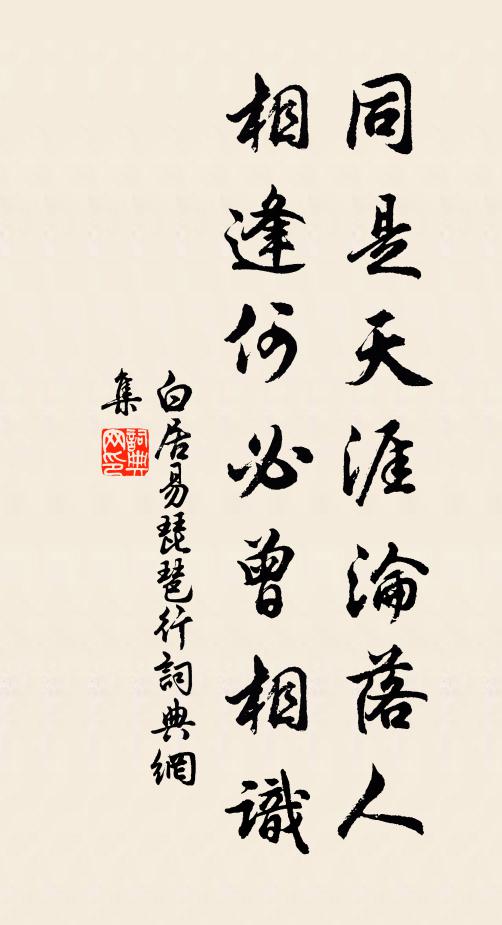 同是天涯淪落人
相逢何必曾相識
白居易琵琶行詞典網
集
詞典网印